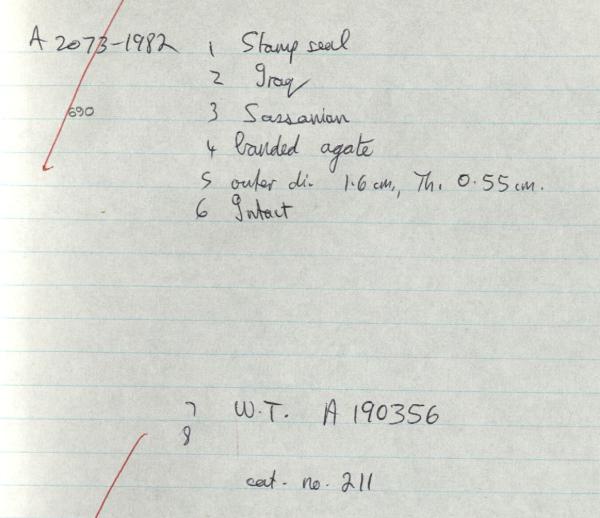 A 2073-1982 1 Stamp seal
2 Iraq
690 3 Sassanian
4 banded agate
5 outer di. 1.6 cm., Th. 0.55 cm.
6 Intact
7 W.T. A 190356
8
cat. no. 211